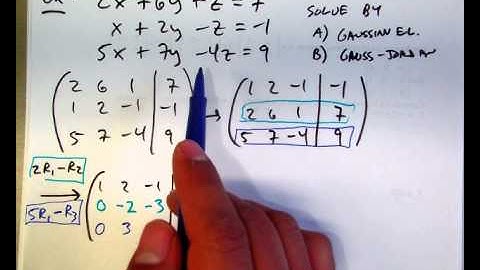 2x + 6y + z = 7
x + 2y - z = -1
5x + 7y - 4z = 9
SOLVE BY
A) GAUSSIAN EL.
B) GAUSS-JORDAN
2 6 1 | 7
1 2 -1 | -1
5 7 -4 | 9
→
1 2 -1 | -1
2 6 1 | 7
5 7 -4 | 9
2R₁-R₂
→
5R₁-R₃
1 2 -1
0 -2 -3
0 3